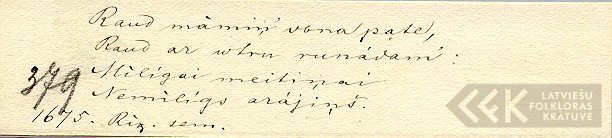 Raud māmiņ' vona pate,
Raud ar otru runādam':
379 Mīlīgai meitiņai
Nemīlīgs arājiņš.
1675. Rīg. sem.
LATVIEŠU
FOLKLORAS
KRĀTUVE